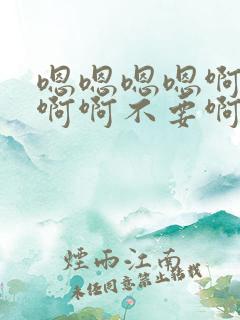 嗯嗯嗯嗯啊
啊啊不要啊
煙雨江南
未经同意禁止转载